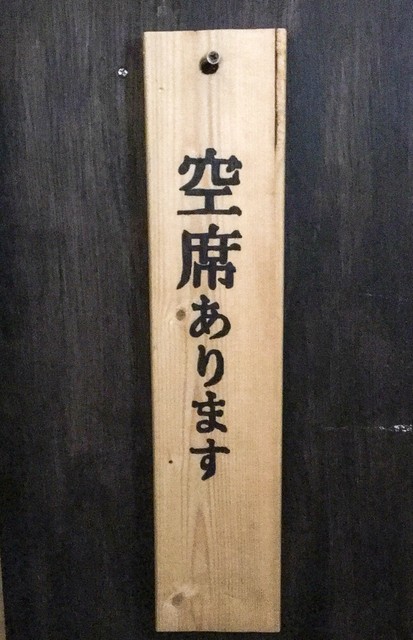 空席あります